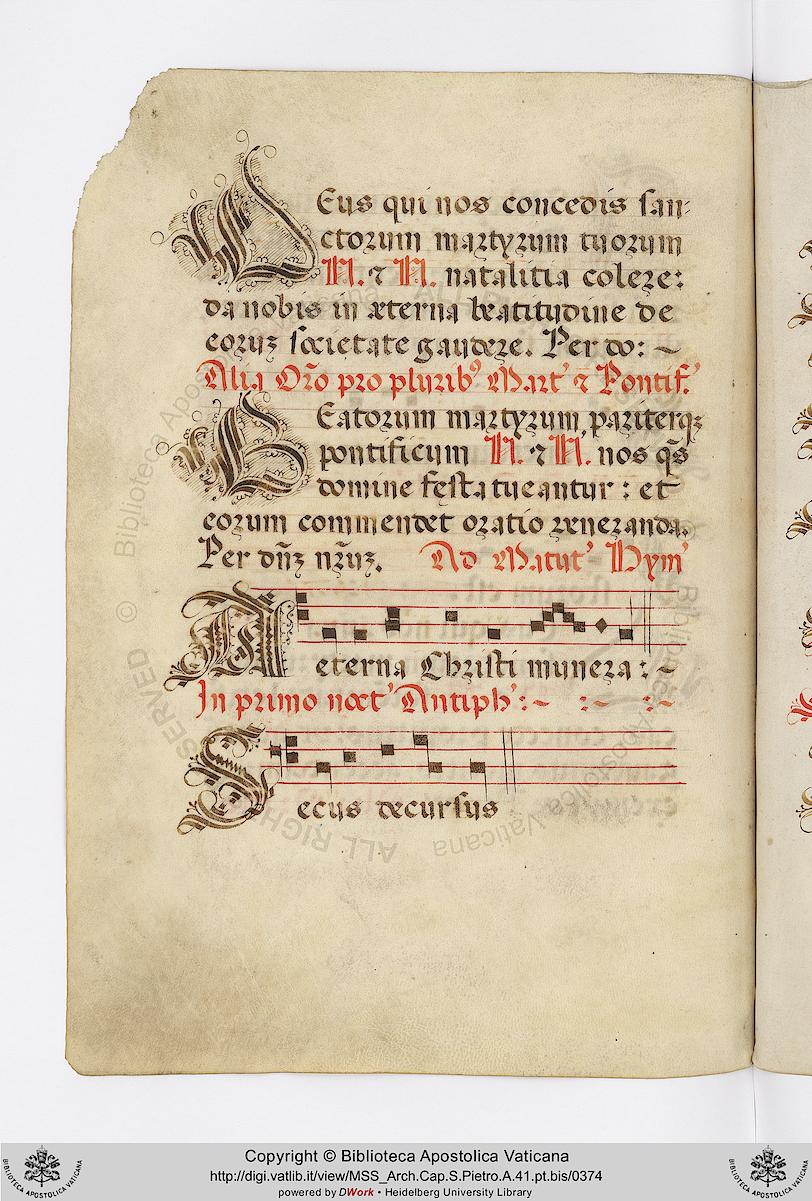 DEus qui nos concedis san-
ctorum martyrum tuorum
N. & N. natalitia colere:
da nobis in æterna beatitudine de
eoruʒ societate gaudere. Per do: ~
Alia Orõ pro plurib⁹ Mart' & Pontif.'
BEatorum martyrum, pariterqʒ
pontificum N. & N. nos qs̃
domine festa tueantur : et
eorum commendet oratio veneranda.
Per dñʒ nr̃uʒ. Ad Matut' Hym'
Aeterna Christi munera : ~
In primo noct' Antiph' : ~ : ~ : ~
Secus decursus
© Biblioteca Apostolica Vaticana
ALL RIGHTS RESERVED
Copyright © Biblioteca Apostolica Vaticana
http://digi.vatlib.it/view/MSS_Arch.Cap.S.Pietro.A.41.pt.bis/0374
powered by DWork • Heidelberg University Library
BIBLIOTECA APOSTOLICA VATICANA
BIBLIOTECA APOSTOLICA VATICANA